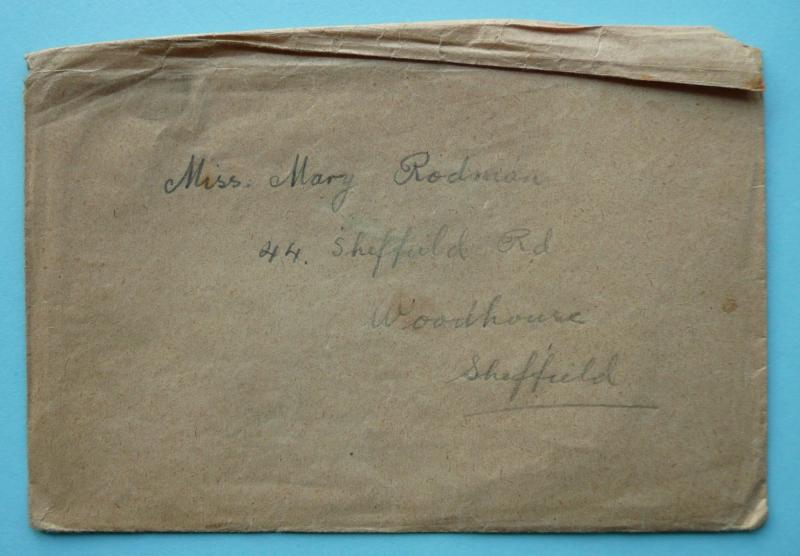 Miss. Mary Rodman
44. Sheffield Rd
Woodhouse
Sheffield